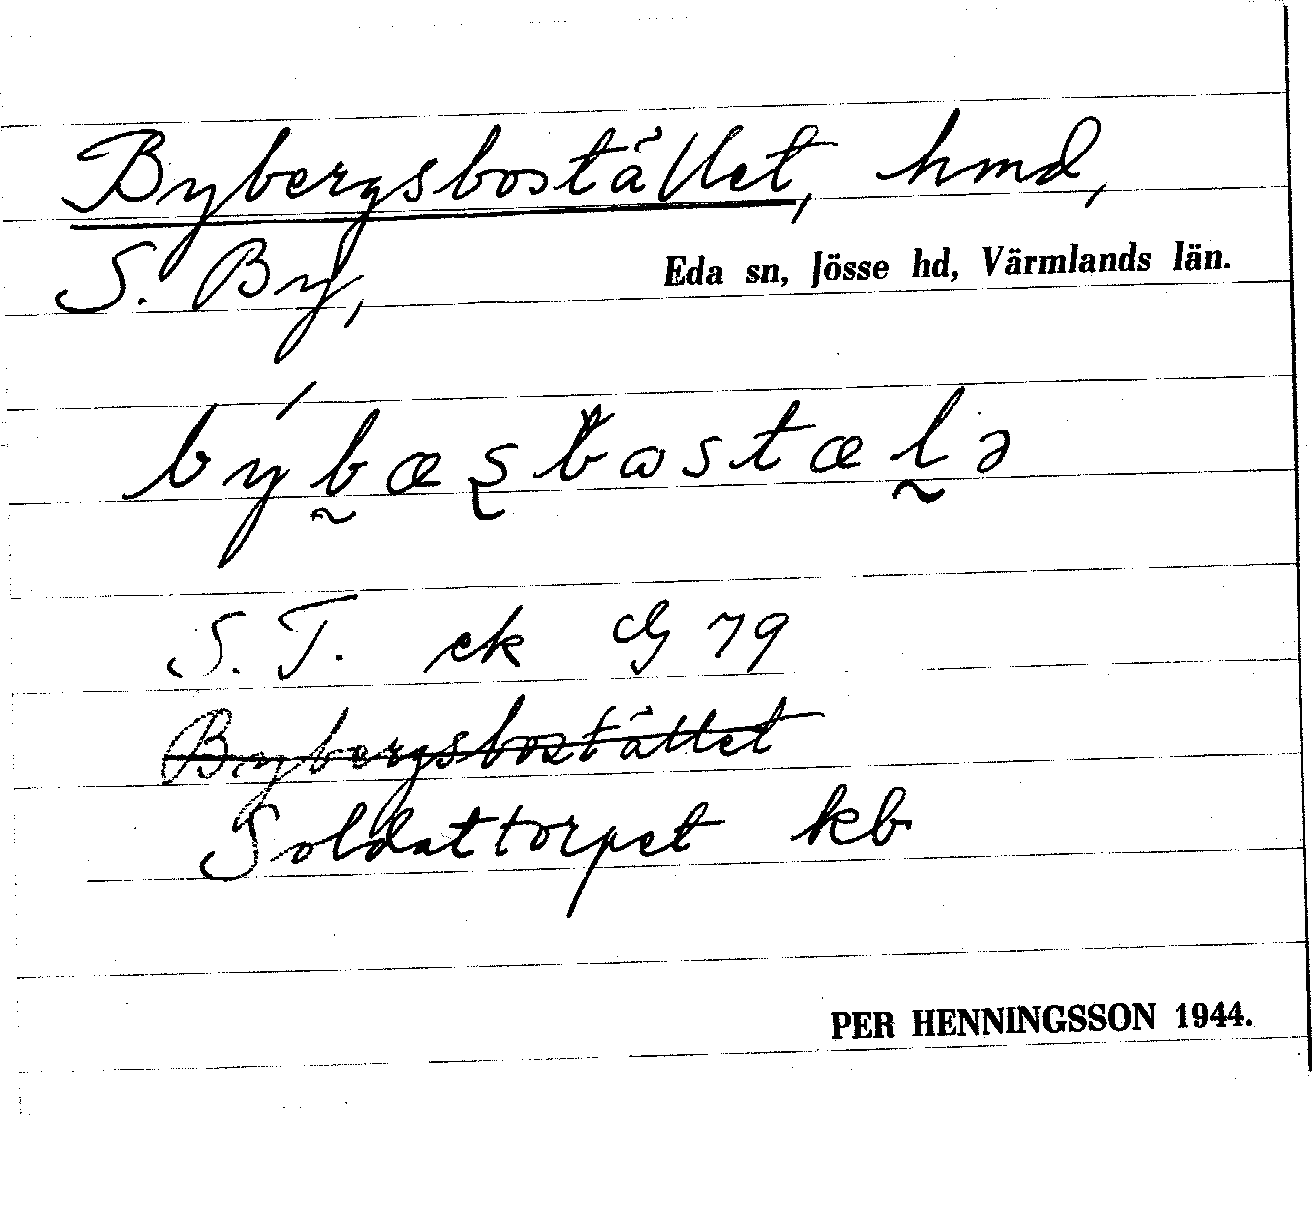 Bybergsbostället, hmd,
S. By, Eda sn, Jösse hd, Värmlands län.
býbæʂbɷstælə
S. T. ek G 79
Bybergsbostället
Soldattorpet kb
PER HENNINGSSON 1944.